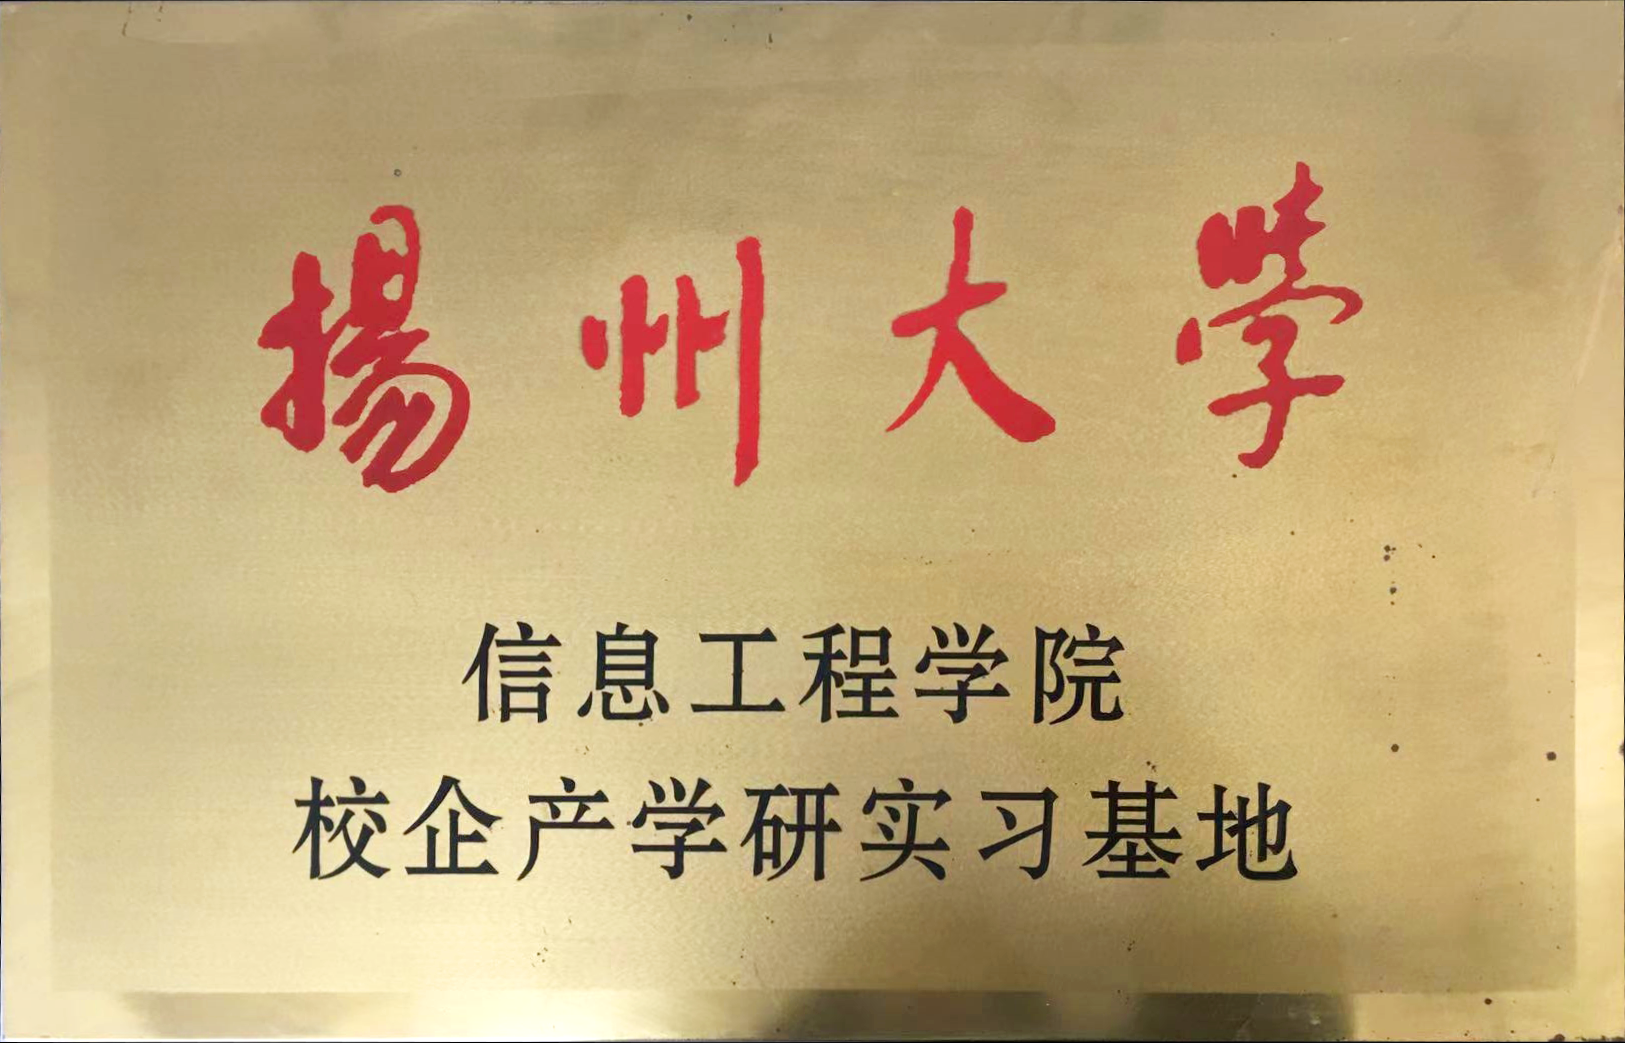 揚州大學
信息工程学院
校企产学研实习基地